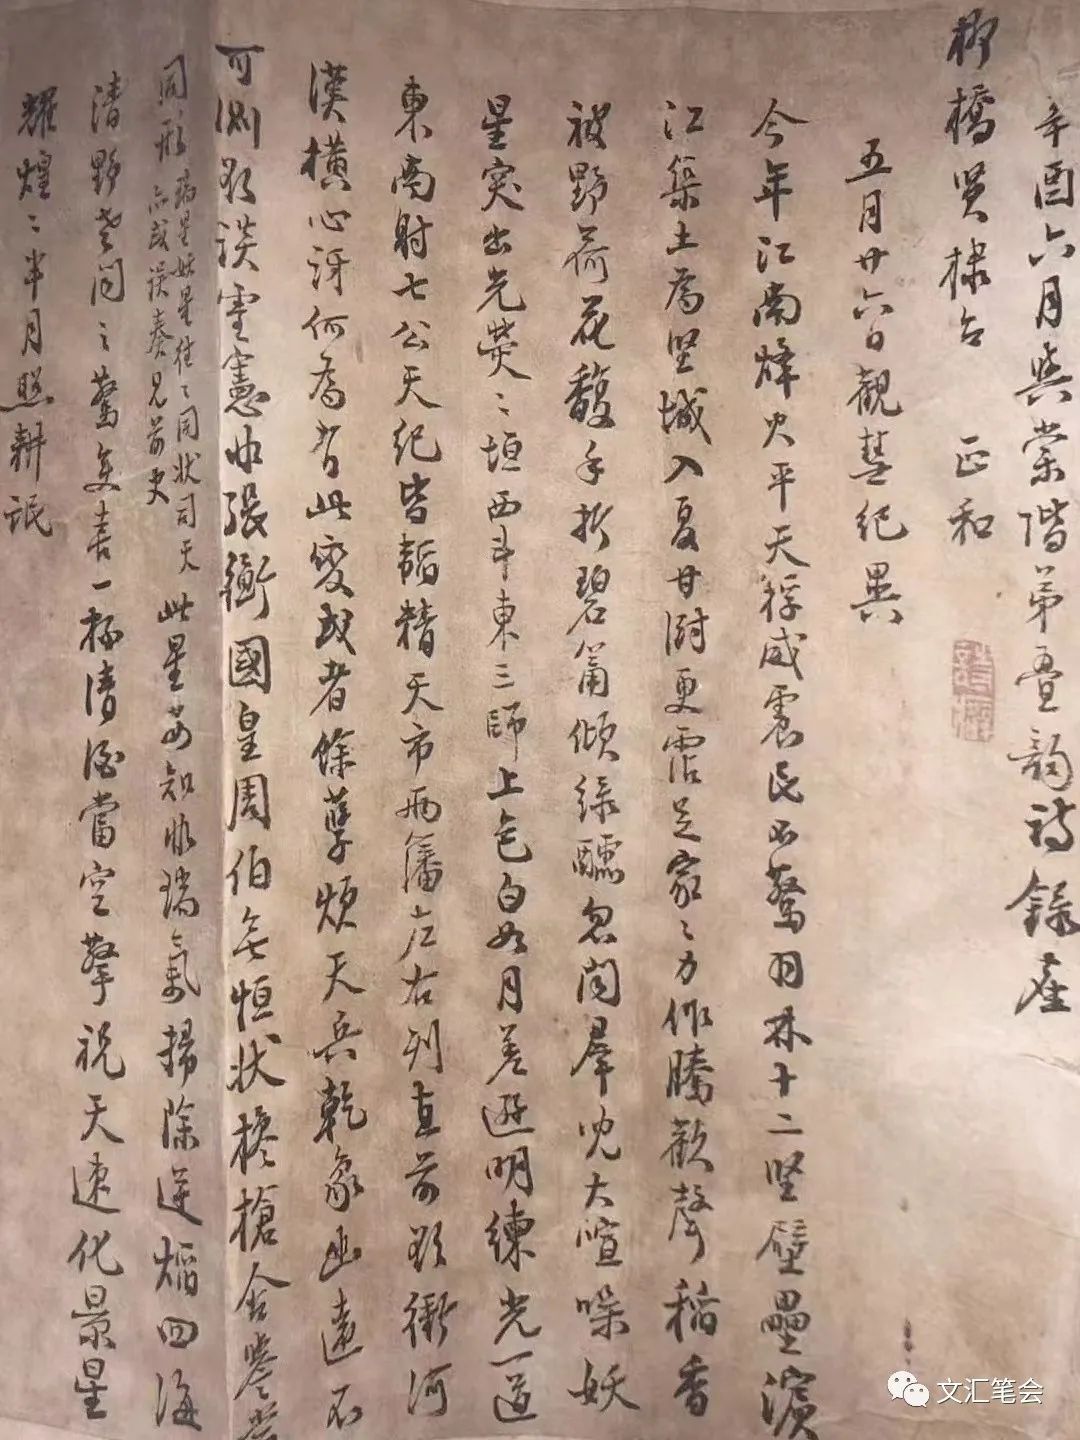 辛酉六月與棠階第疊韻詩錄産
柳橋賢棣台 正和
五月廿六日觀彗紀異
今年江南烽火平天稃威震民不驚羽林十二堅壁壘濱
江築土為堅城入夏甘澍更霑足家〻力作騰歡聲稻香
被野荷花馥手折碧筩傾綠醽忽聞羣兒大喧噪妖
星突出光熒〻垣西斗東三師上色白如月差遜明練光一道
東南射七公天紀皆韜精天市兩藩左右列直前欲衝河
漢橫心訝何為有此變或者餘孽煩天兵乾象幽遠不
可測欲談靈憲非張衡國皇周伯無恒狀欃槍含譽嘗
同形 瑞星妖星往〻同狀司天
亦或誤奏見前史
此星安知非瑞氣掃除逆燄四海
清野老聞之驚復喜一杯清酒當空擎祝天速化景星
耀煌〻半月照耕氓
文汇笔会